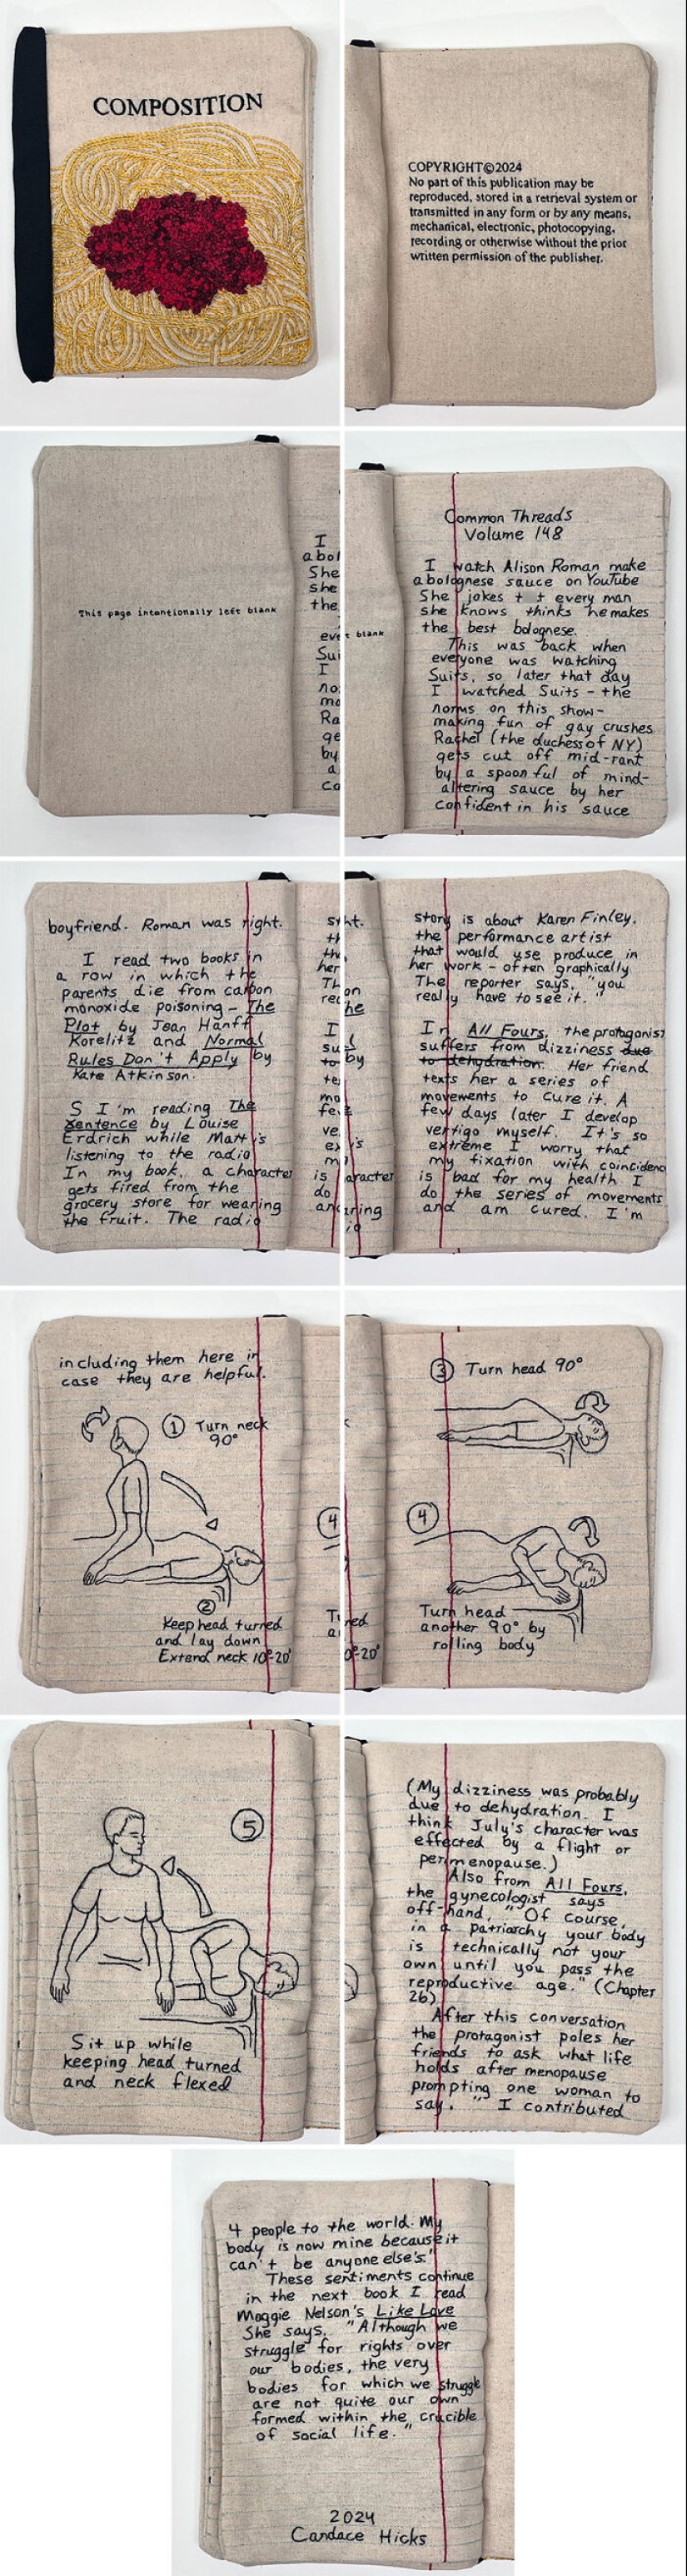 COMPOSITION
COPYRIGHT©2024
No part of this publication may be
reproduced, stored in a retrieval system or
transmitted in any form or by any means,
mechanical, electronic, photocopying,
recording or otherwise without the prior
written permission of the publisher.
This page intentionally left blank
Common Threads
Volume 148
I watch Alison Roman make
a bolognese sauce on YouTube
She jokes t t every man
she knows thinks he makes
the best bolognese.
This was back when
everyone was watching
Suits, so later that day
I watched Suits - the
norms on this show-
making fun of gay crushes
Rachel (the duchess of NY)
gets cut off mid-rant
by a spoonful of mind-
altering sauce by her
confident in his sauce
boyfriend. Roman was right.
I read two books in
a row in which the
parents die from carbon
monoxide poisoning - The
Plot by Jean Hanff
Korelitz and Normal
Rules Don't Apply by
Kate Atkinson.
S I'm reading The
Sentence by Louise
Erdrich while Matt is
listening to the radio
In my book, a character
gets fired from the
grocery store for wearing
the fruit. The radio
story is about Karen Finley.
the performance artist
that would use produce in
her work - often graphically
The reporter says, "you
really have to see it."
In All Fours, the protagonist
suffers from dizziness due
to dehydration. Her friend
texts her a series of
movements to cure it. A
few days later I develop
vertigo myself. It's so
extreme I worry that
my fixation with coincidenc
is bad for my health I
do the series of movements
and am cured. I'm
including them here in
case they are helpful.
① Turn neck
90°
②
Keep head turned
and lay down
Extend neck 10°-20°
③ Turn head 90°
④
Turn head
another 90° by
rolling body
⑤
Sit up while
keeping head turned
and neck flexed
(My dizziness was probably
due to dehydration. I
think July's character was
effected by a flight or
perimenopause.)
Also from All Fours,
the gynecologist says
off-hand, "Of course,
in a patriarchy your body
is technically not your
own until you pass the
reproductive age." (Chapter
26)
After this conversation
the protagonist poles her
friends to ask what life
holds after menopause
prompting one woman to
say, "I contributed
4 people to the world. My
body is now mine because it
can't be anyone else's."
These sentiments continue
in the next book I read
Maggie Nelson's Like Love
She says, "Although we
struggle for rights over
our bodies, the very
bodies for which we struggle
are not quite our own
formed within the crucible
of social life."
2024
Candace Hicks